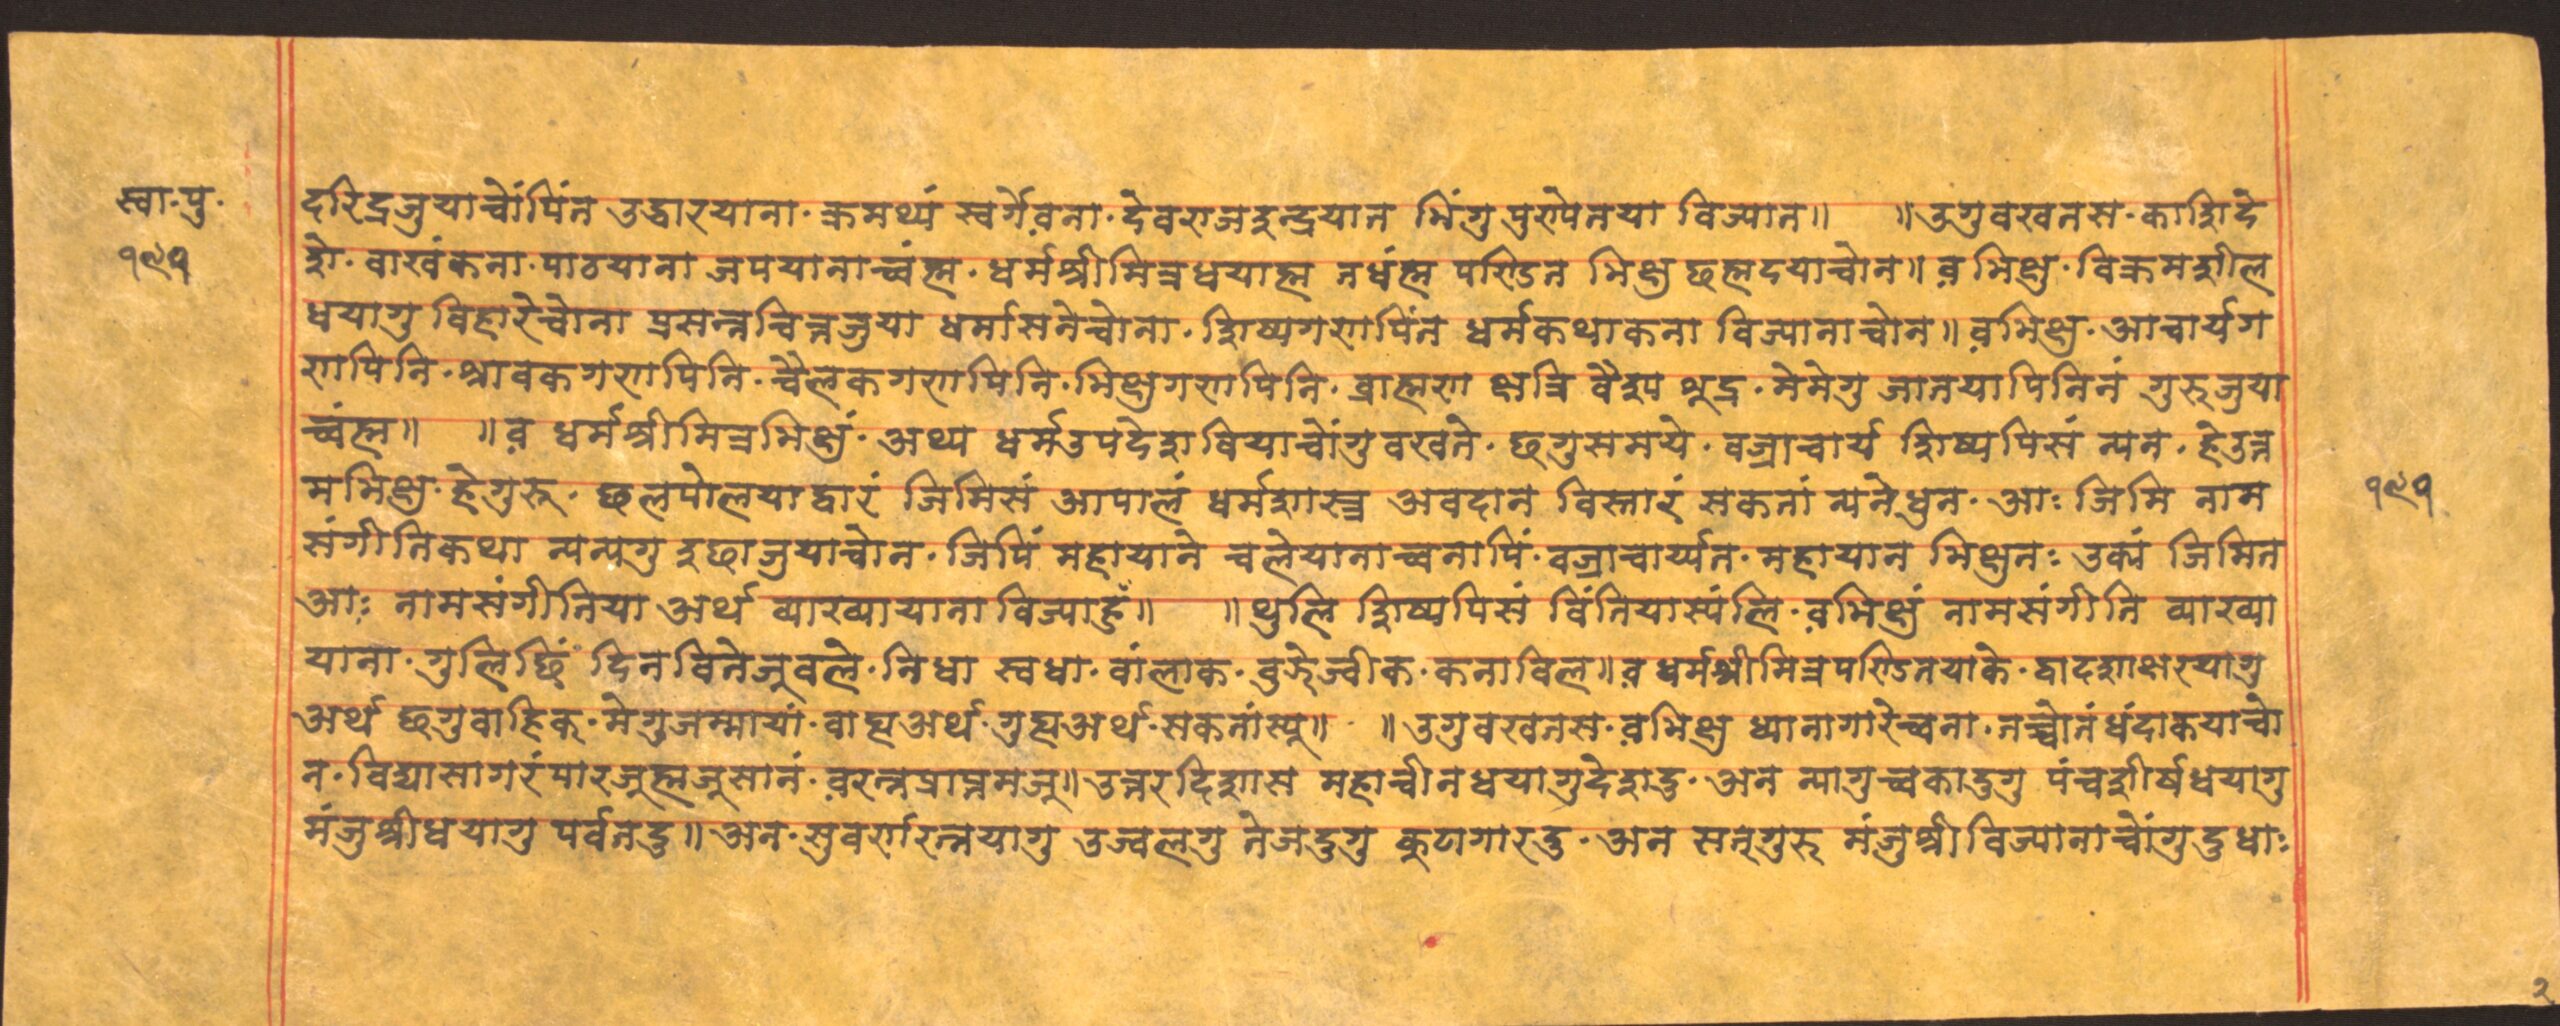 स्वा॰पु॰
१९१
दरिद्रजुयाच्वोंपिंत उद्धारयाना॰ क्रमथ्यं स्वर्गे व़ना॰ देवराजइन्द्रयात भिंगु पुरोपेतया विज्यात॥ ॥उगुवखतस॰ काशिदे
शे॰ वाखंकना॰ पाठयाना जपयानाच्वंह्म॰ धर्मश्रीमित्रधयाह्म तधंह्म पण्डित भिक्षु छह्मदयाच्वोन॥ व़भिक्षु॰ विक्रमशील
धयागु विहारेच्वोना प्रसन्नचित्तजुया धर्मासनेच्वोना॰ शिष्यगणपिंत धर्मकथाकना विज्यानाच्वोन॥ व़भिक्षु॰ आचार्यग
णपिनि॰ श्रावकगणपिनि॰ चैलकगणपिनि॰ भिक्षुगणपिनि॰ ब्राह्मण क्षत्रि वैश्य शूद्र॰ मेमेगु जातयापिनिनं गुरुजुया
च्वंह्म॥ ॥व़ धर्मश्रीमित्रभिक्षुं॰ अथ्य धर्मउपदेश वियाच्वोंगुवखते॰ छगुसमये॰ वज्राचार्य शिष्यपिसं न्यन॰ हेउत्त
मभिक्षु॰ हेगुरु॰ छलपोलयाद्वारं जिमिसं आपालं धर्मशास्त्र अवदान विस्तारं सकतां न्यनेधुन॰ आः जिमि नाम
१९१
संगीतिकथा न्यन्यगु इछाजुयाच्वोन॰ जिपिं महायाने चलेयानाच्वनापिं॰ वज्राचार्य्यत॰ महायान भिक्षुतः उक्यं जिमित
आः नामसंगीतिया अर्थ व्याख्यायाना विज्याहुँ॥ ॥थुलि शिष्यपिसं विंतियास्यंलि॰ व़भिक्षुं नामसंगीति व्याख्या
याना॰ गुलिछिं दिनवितेजुवले॰ निधा स्वधा॰ वांलाक॰ वुझेज्वीक॰ कनाविल॥ व़ धर्मश्रीमित्रपण्डितयाके॰ द्वादशाक्षरयागु
अर्थ छगुवाहिक॰ मेगुजम्मायां॰ वाह्यअर्थ॰ गुह्यअर्थ॰ सकतांस्यू॥ ॥उगुवखतस॰ व़भिक्षु ध्यानागारेच्वना॰ तच्वोतंधंदाकयाच्वो
न॰ विद्यासागरंपारजूह्मजूसानं॰ व़रत्नप्राप्तमजू॥ उत्तरदिशास महाचीनधयागुदेशदु॰ अन न्यागुच्वकादुगु पंचशीर्षधयागु
मंजुश्रीधयागु पर्वतदु॥ अन॰ सुवर्णरत्नयागु उज्वलगु तेजदुगु कुटागारदु॰ अन सत्गुरु मंजुश्री विज्यानाच्वोंगुदुधाः
२